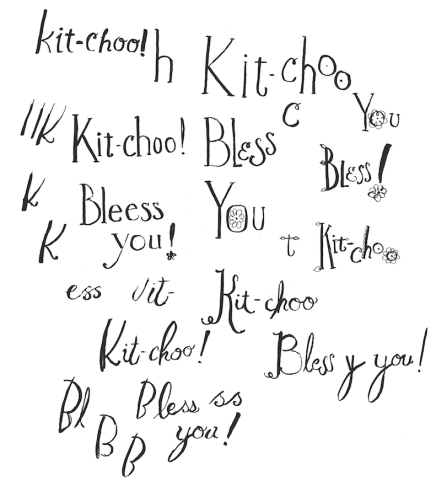 kit-choo! h Kit-choo
c
You
llK Kit-choo! Bless
Bless!
K Bleess You
K you! t Kit-choo
ess Vit- Kit-choo
Kit-choo! Bless y you!
Bl Bless ss
B B you!